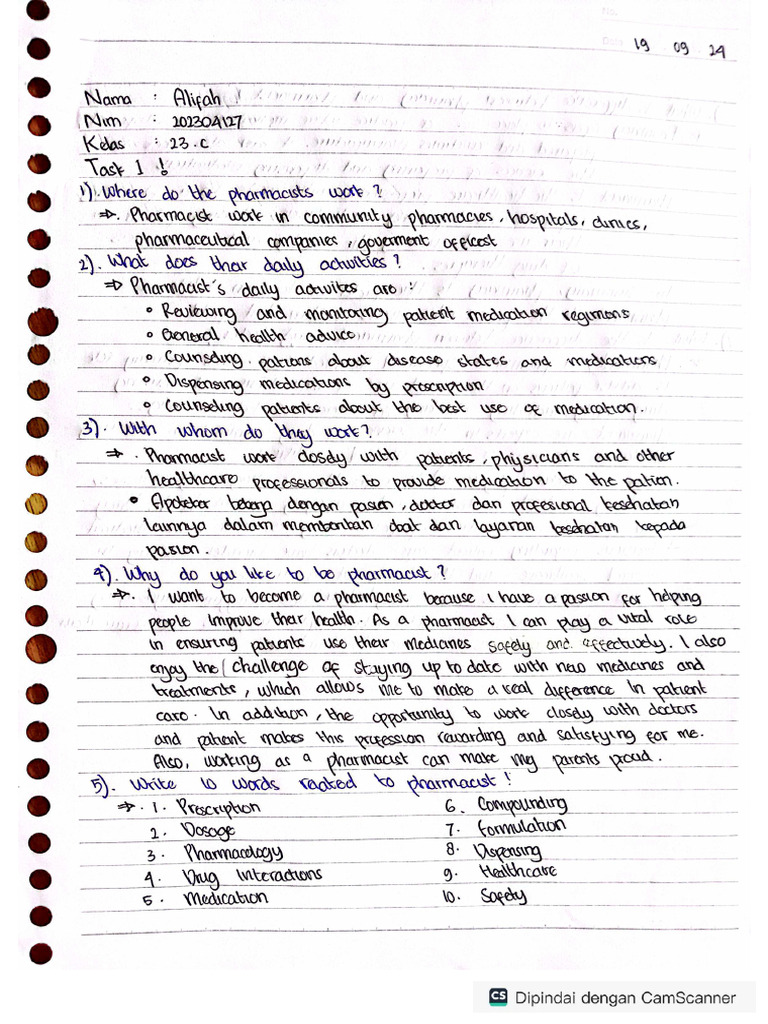 No.
Date 19 09 24
Nama : Alifah
Nim : 202304127
Kelas : 23.C
Task 1 !
1). Where do the pharmacists work ?
⇒. Pharmacist work in community pharmacies, hospitals, clinics,
pharmaceutical companies, goverment officest
2). What does their daily activities ?
⇒ Pharmacist's daily activites are :
• Reviewing and monitoring patient medication regimens
• General health advice
• Counseling patiens about disease states and medications
• Dispensing medications by prescription
• Counseling patients about the best use of medication.
3). With whom do they work?
⇒ . Pharmacist work closdy with patients, physicians and other
healthcare professionals to provide medication to the patien.
• Apoteker bekerja dengan pasien, doktor dan profesional kesehatan
lainnya dalam memberikan obat dan layanan kesehatan kepada
pasien.
4). Why do you like to be pharmacist ?
⇒. I want to become a pharmacist because I have a passion for helping
people improve their health. As a pharmacist I can play a vital role
in ensuring patients use their medicines safely and effectively. I also
enjoy the challenge of staying up to date with new medicines and
treatments, which allows me to make a real difference in patient
care. In addition, the opportunity to work closely with doctors
and patient makes this profession rewarding and satisfying for me.
Also, working as a pharmacist can make my parents proud.
5). Write 10 words reated to pharmacist !
⇒. 1. Prescription
2. Dosage
3. Pharmacology
4. Drug Interactions
5. Medication
6. Compounding
7. Formulation
8. Dispensing
9. Healthcare
10. Safety
CS Dipindai dengan CamScanner